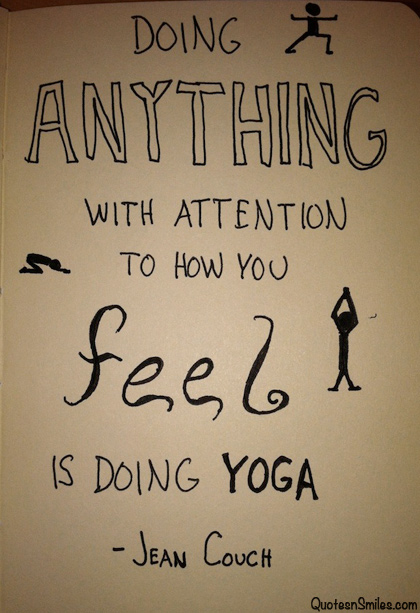 DOING
ANYTHING
WITH ATTENTION
TO HOW YOU
feel
IS DOING YOGA
- JEAN COUCH
QuotesnSmiles.com